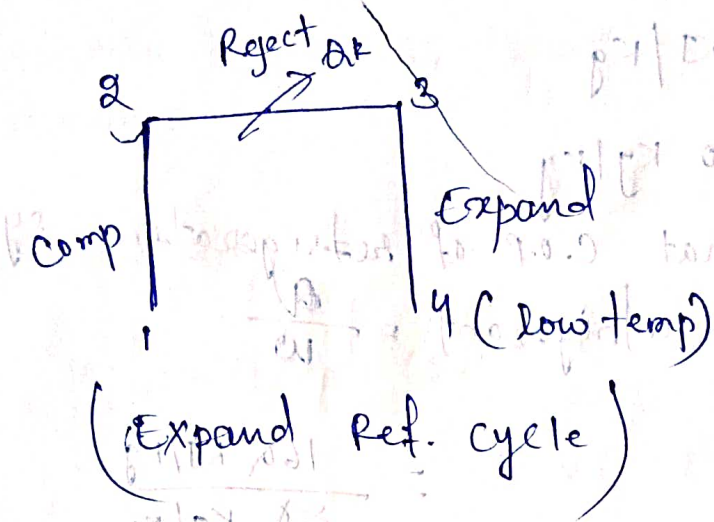 Reject Qk
2 3
Comp Expand
1 4 (low temp)
(Expand Ref. cycle)